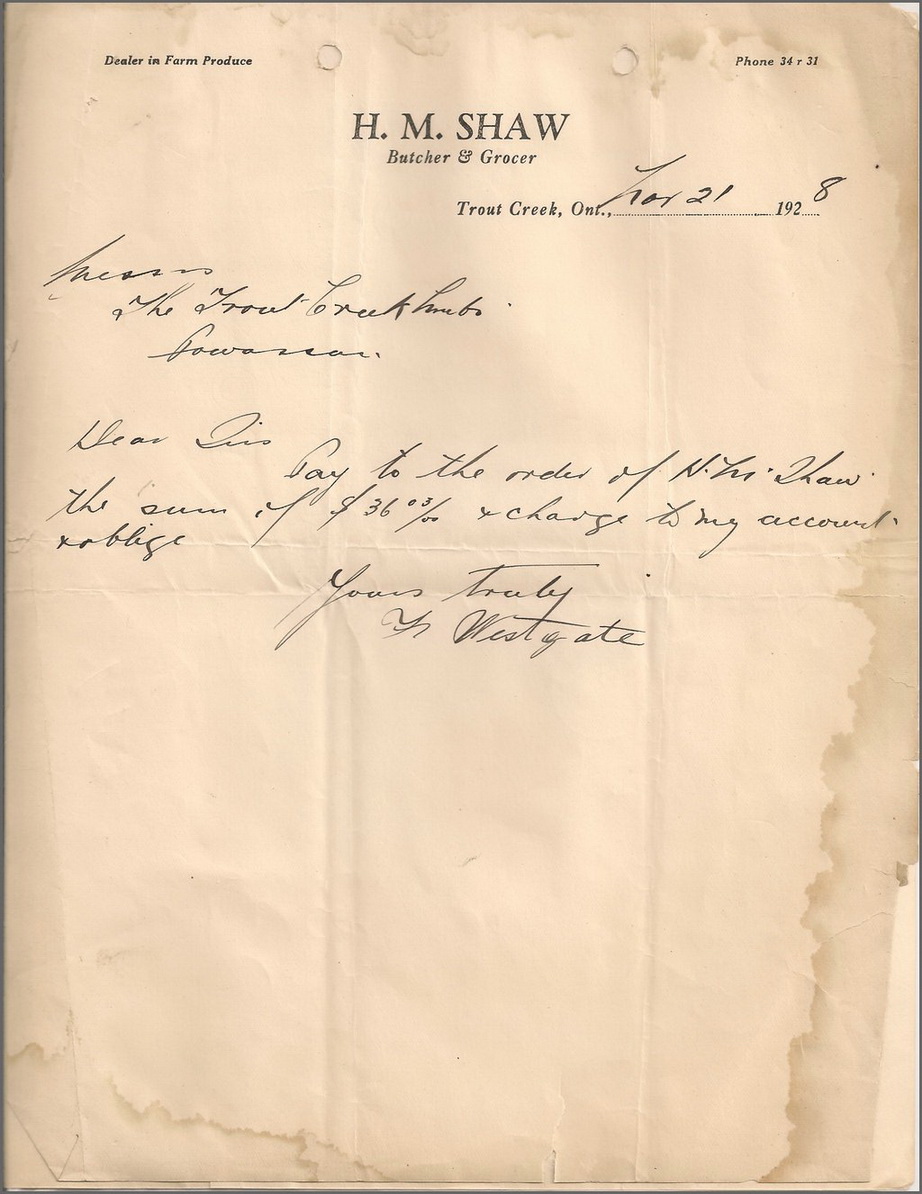 Dealer in Farm Produce
Phone 34 r 31
H. M. SHAW
Butcher & Grocer
Trout Creek, Ont., Nov 21 1928
Messrs
The Trout Creek
Powassan.
Dear Sirs
Pay to the order of H. M. Shaw
the sum of $36 03/00 & charge to my account
& oblige
Yours truly
Westgate